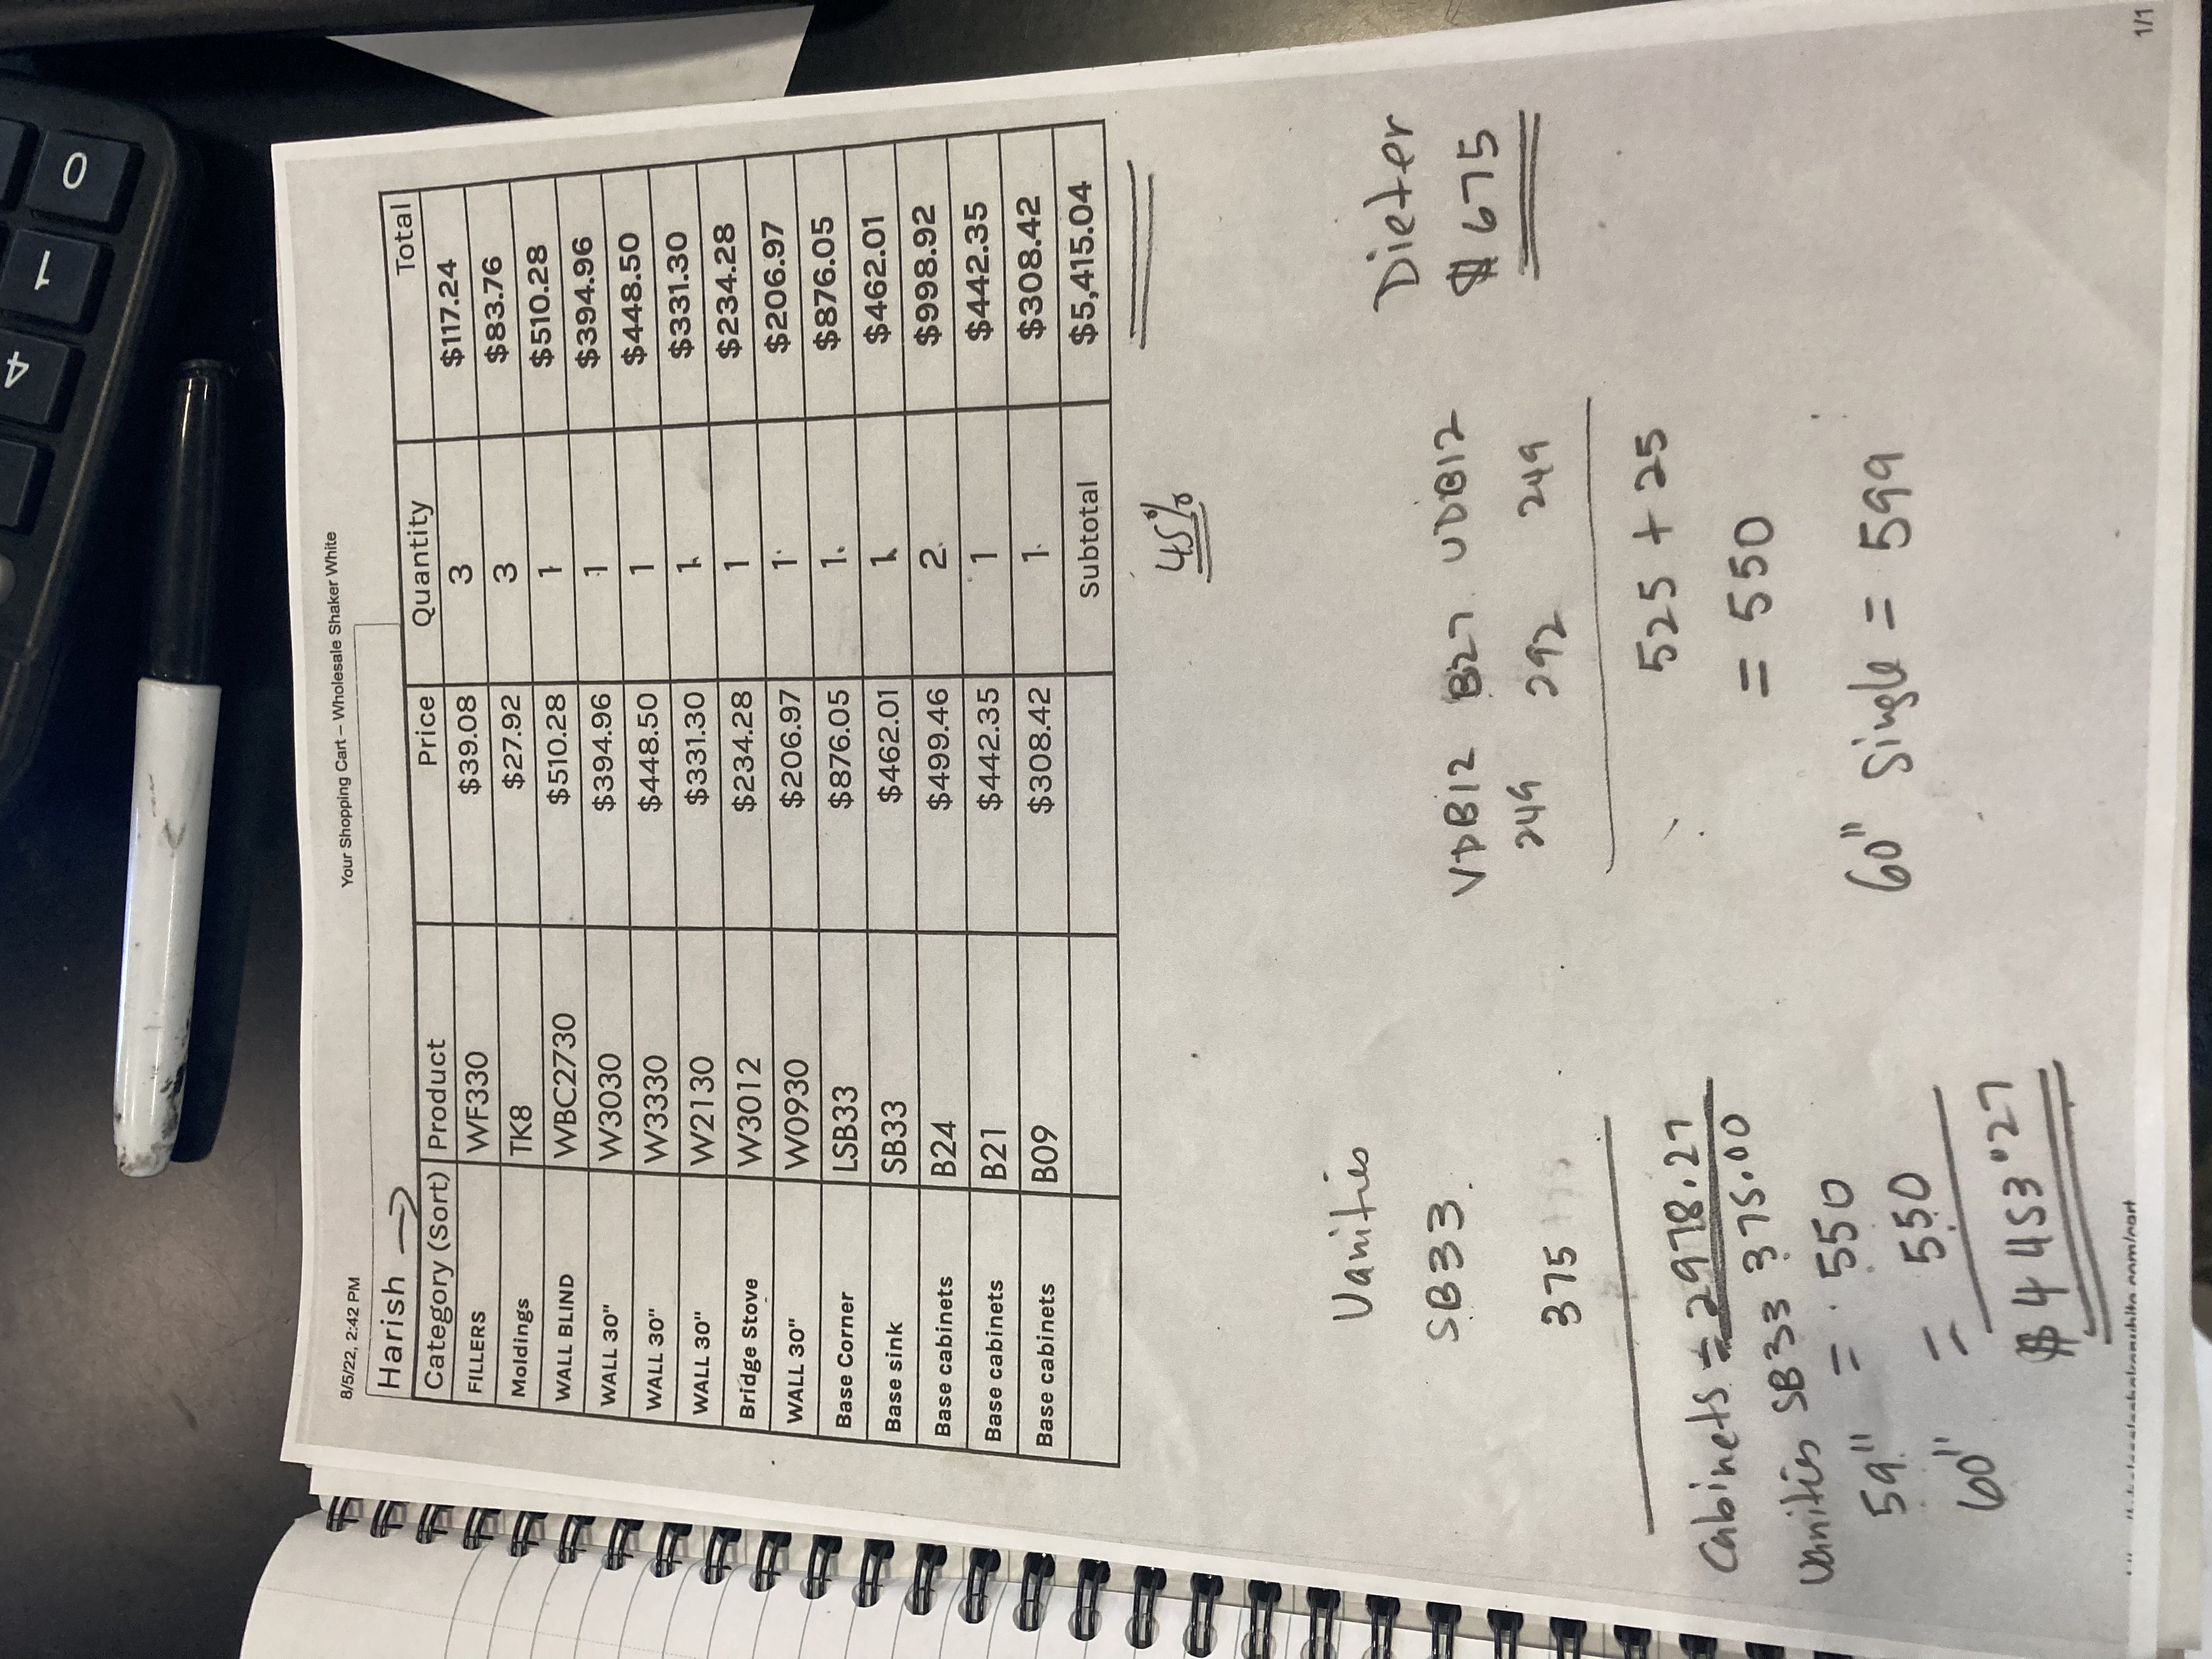 8/5/22, 2:42 PM Your Shopping Cart – Wholesale Shaker White
Harish
Category (Sort) Product Price Quantity Total
FILLERS WF330 $39.08 3 $117.24
Moldings TK8 $27.92 3 $83.76
WALL BLIND WBC2730 $510.28 1 $510.28
WALL 30" W3030 $394.96 1 $394.96
WALL 30" W3330 $448.50 1 $448.50
WALL 30" W2130 $331.30 1 $331.30
Bridge Stove W3012 $234.28 1 $234.28
WALL 30" W0930 $206.97 1 $206.97
Base Corner LSB33 $876.05 1 $876.05
Base sink SB33 $462.01 1 $462.01
Base cabinets B24 $499.46 2 $998.92
Base cabinets B21 $442.35 1 $442.35
Base cabinets B09 $308.42 1 $308.42
Subtotal $5,415.04
45%
Vanities
SB33
375
VDB12 B27 VDB12
249 292 249
525 + 25
= 550
60" Single = 599
Dieter
$675
Cabinets = 2978.27
Vanities SB33 375.00
59" = 550
60" = 550
$4453.27
1/1
0
1
4